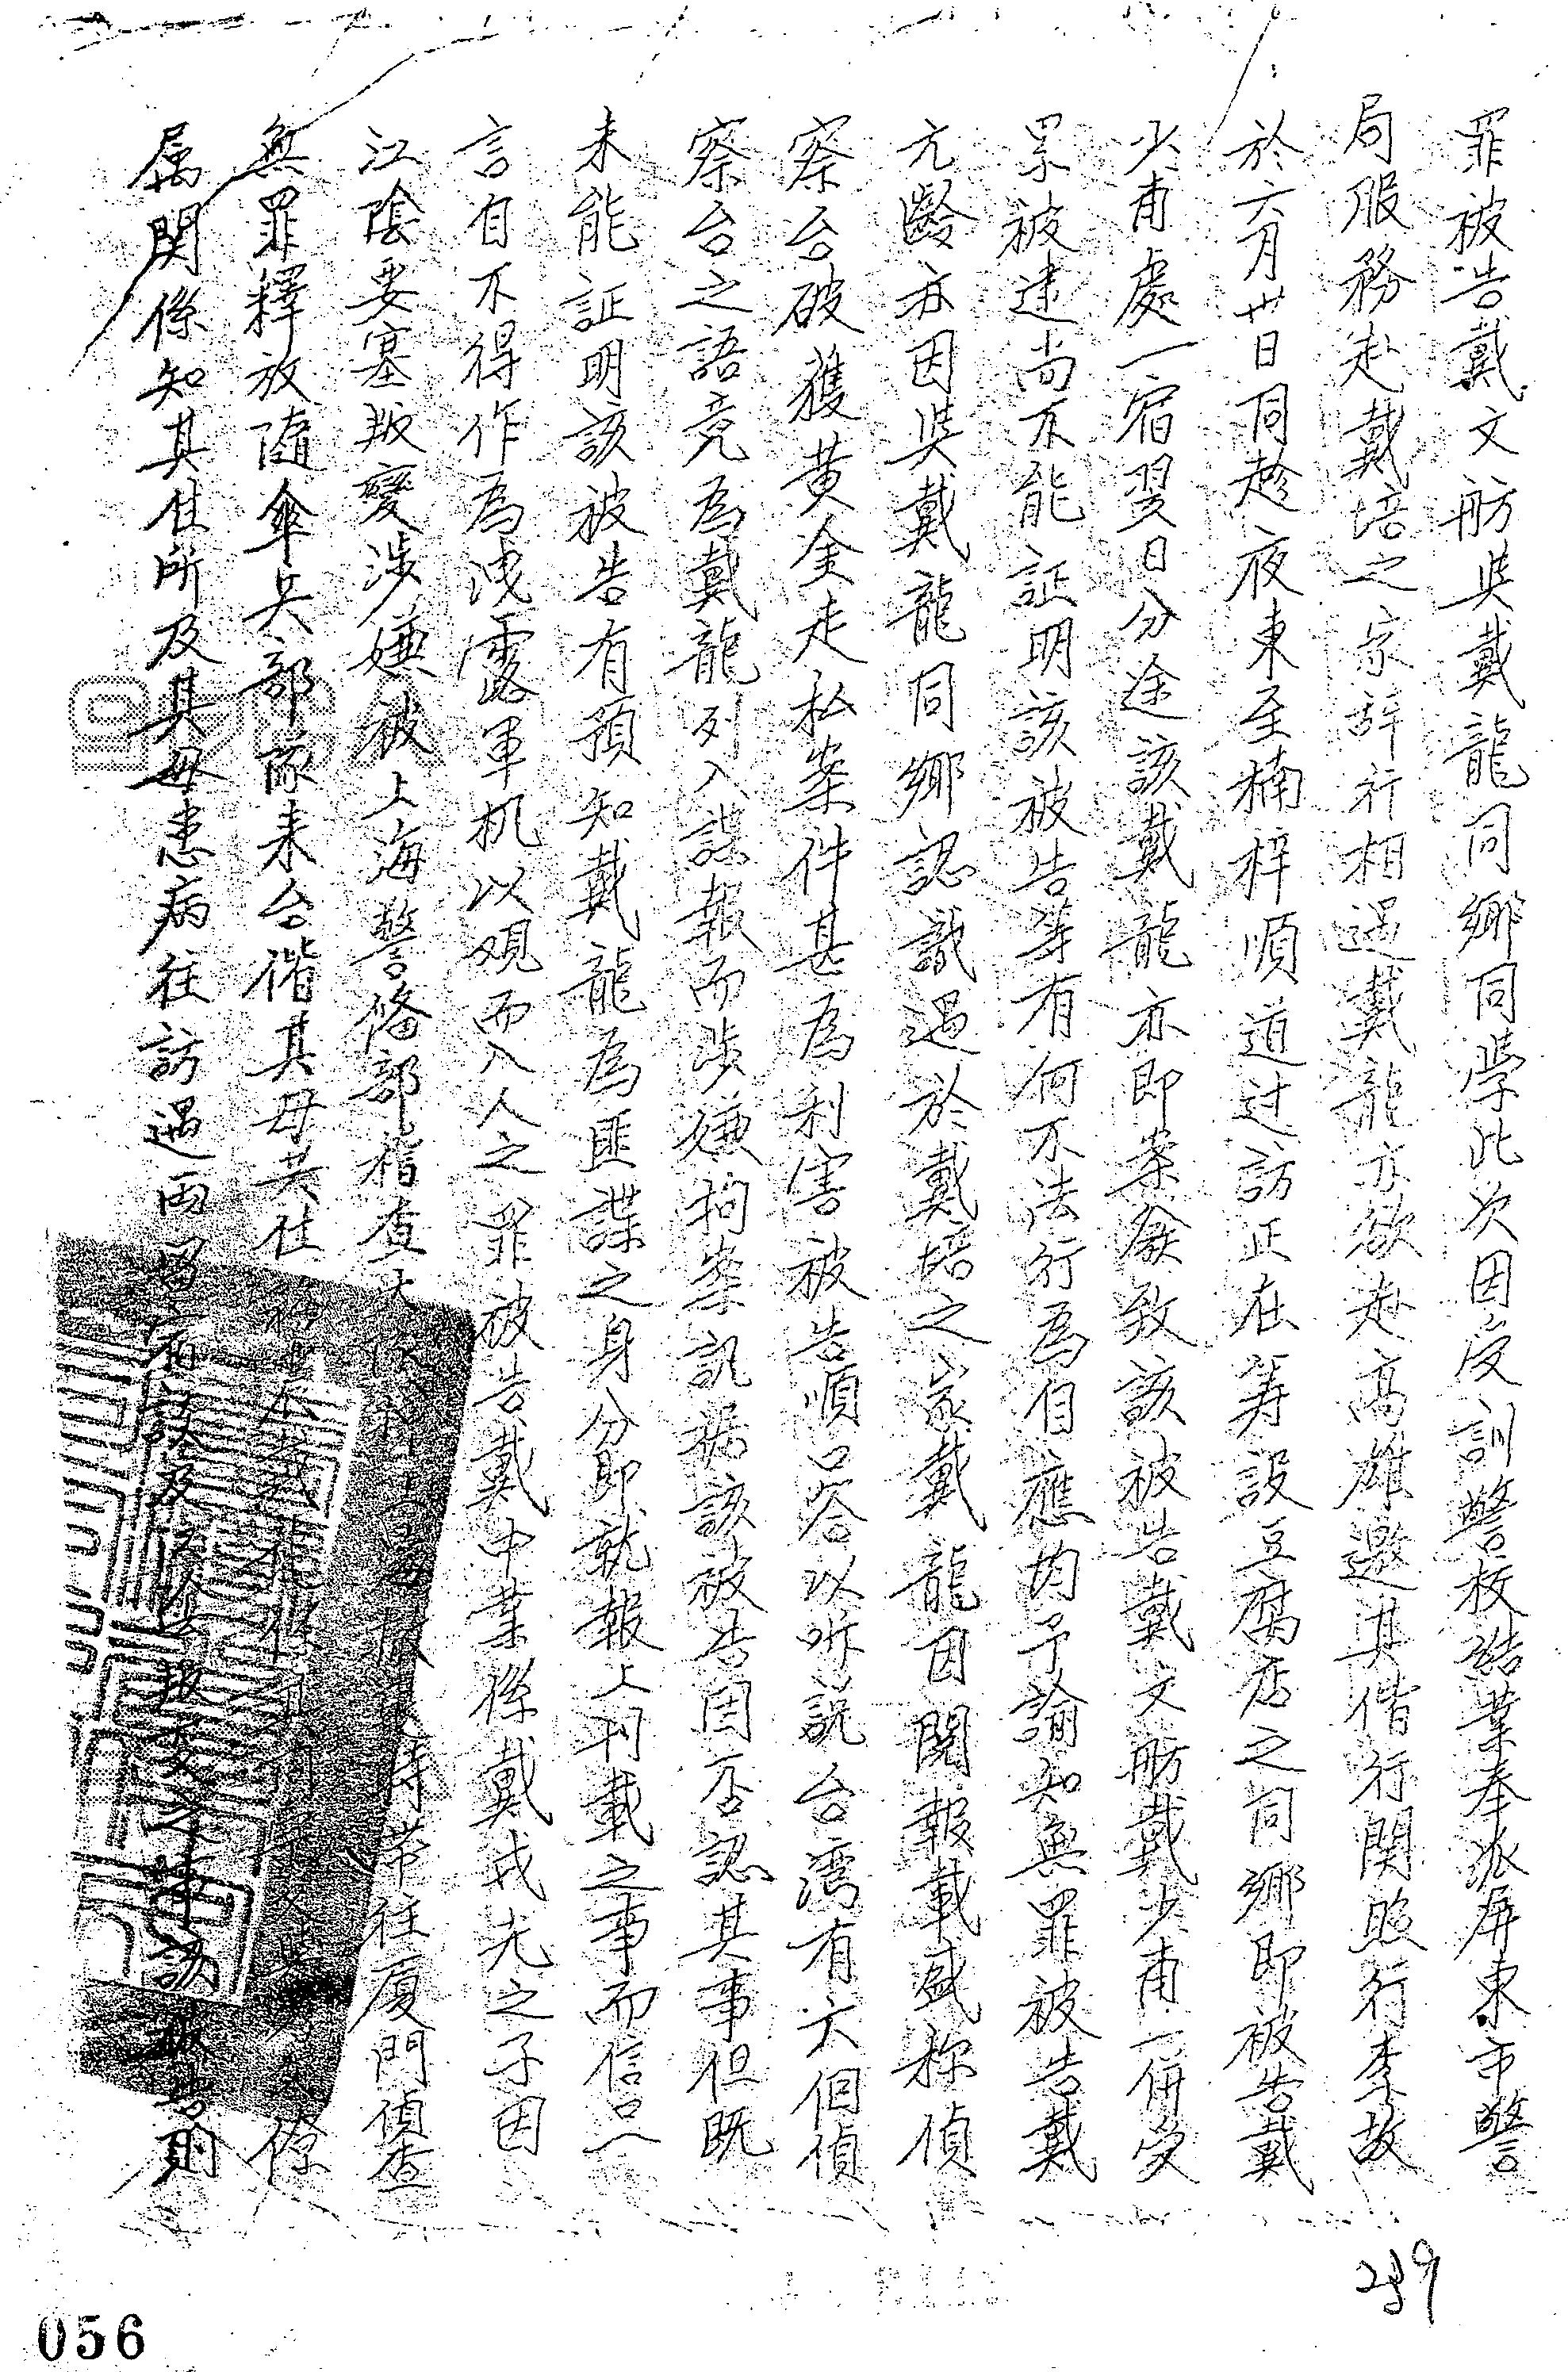 罪被告戴文舫吳戴龍同鄉同學此次因受訓警校結業奉派屏東市警
局服務赴戴培之家辞行相遇戴龍亦欲赴高雄邀其偕行関照行李故
於六月卅日同趁夜東至楠梓順道过訪正在筹設豆腐店之同鄉即被告戴
少甫處一宿翌日分途該戴龍亦即案發致該被告戴文舫戴少甫一併受
累被逮尚不能証明該被告等有何不法行為自應均予諭知無罪被告戴
元齡亦因吳戴龍同鄉認識遇於戴培之家戴龍因閱報載盛称偵
察台破獲黄金走私案件甚為利害被告順口答以听說台湾有六個偵
察台之語竟為戴龍列入諜報而涉嫌拘案訊據該被告固否認其事但既
未能証明該被告有預知戴龍為匪諜之身分即就報上刊載之事而信口一
言自不得作為洩露軍机以观而入人之罪被告戴中業係戴戎光之子因
江陰要塞叛變涉嫌被上海警俻部指查 時带往厦門偵查
無罪釋放隨傘兵部隊来台偕其母共住 戴龍係其同 係
属関係知其住所及其母患病往訪遇两 談及 叛变之事訪被告則
056
259